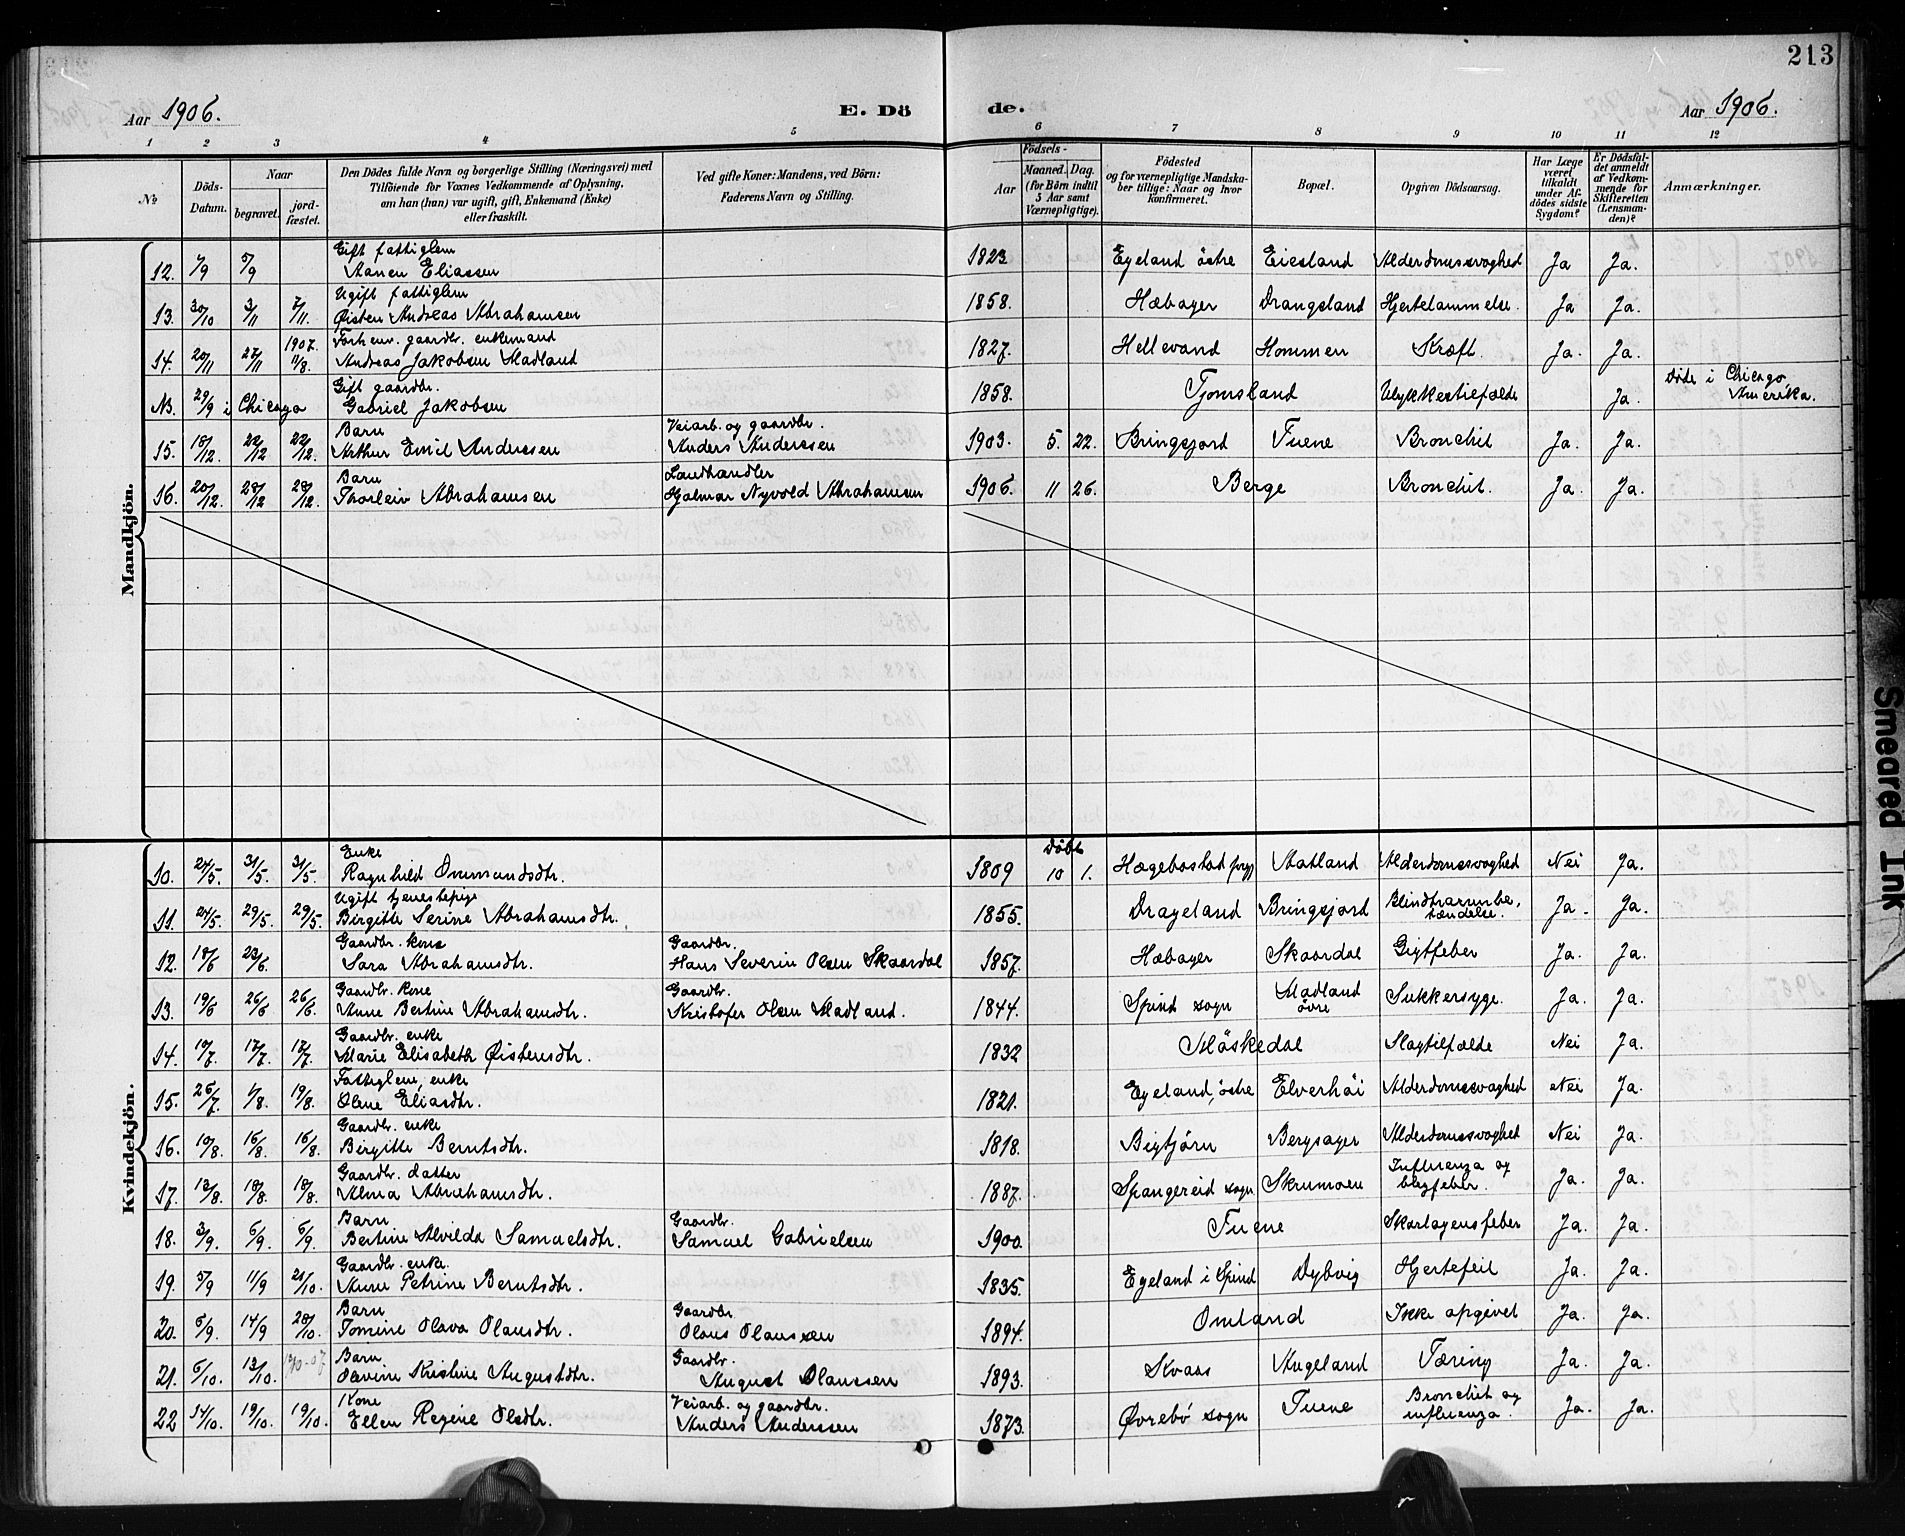 213
Aar 1906. E. Dö de. Aar 1906.
1 2 3 4 5 6 7 8 9 10 11 12
№ Döds-Datum. Naar begravet. jord-fæstet. Den Dödes fulde Navn og borgerlige Stilling (Næringsvei) med Tilföiende for Voxnes Vedkommende af Oplysning, om han (hun) var ugift, gift, Enkemand (Enke) eller fraskilt. Ved gifte Koner: Mandens, ved Börn: Faderens Navn og Stilling. Aar Födsels- Maaned. Dag. (for Börn indtil 5 Aar samt Værnepligtige). Födested og for værnepligtige Mandska-ber tillige: Naar og hvor konfirmeret. Bopæl. Opgiven Dödsaarsag. Har Læge været tilkaldt under Af-dödes sidste Sygdom? Er Dödsfal-det anmeldt af Vedkom-mende for Skifteretten (Lensman-den)? Anmærkninger.
Mandkjön.
12. 1/9 5/9 Gift fattiglem Aanen Eliassen 1823 Egeland östre Eiesland Alderdomssvaghed Ja Ja.
13. 30/10 3/11 7/11. Ugift fattiglem Øisten Andreas Abrahamsen 1858. Hæbager Drangsland Hjertelammelse. Ja Ja.
14. 20/11 27/11 1907. 11/8. Forhenv. gaardbr. enkemand Andreas Jakobsen Stadland 1827. Hellevand Hommen Kræft. Ja. Ja.
NB. 29/9 i Chicago Gift gaardbr. Gabriel Jakobsen 1858. Tjomsland Ulykkestilfælde Ja. Döde i Chicago, Amerika.
15. 18/12. 22/12 22/12. Barn Arthur Emil Anderssen Veiarb. og gaardbr. Anders Anderssen 1903. 5. 22. Bringsjord Tuene Bronchit Ja. Ja.
16. 20/12. 28/12 28/12. Barn Thorleiv Abrahamsen Landhandler Hjalmar Nyvold Abrahamsen 1906. 11 26. Berge Bronchit. Ja. Ja.
Kvindekjön.
10. 24/5. 31/5. 31/5. Enke Ragnhild Ommundsdtr. 1809 döbt 10 1. Hægebostad prgj Statland Alderdomssvaghed Nei Ja.
11. 24/5. 29/5. 29/5. Ugift tjenestepige Birgitte Serine Abrahamsdtr. 1855. Drageland Bringsjord Blindtarmbe, tændelse. Ja. Ja.
12. 18/6 23/6. Gaardbr. kone Sara Abrahamsdtr. Gaardbr. Hans Severin Olsen Skaardal 1857. Hæbager Skaardal Gigtfeber Ja. Ja.
13. 19/6 26/6 26/6. Gaardbr. kone Anne Bertine Abrahamsdtr. Gaardbr. Kristofer Olsen Stadland. 1844. Spind sogn Stadland övre Sukkersyge. Ja. Ja.
14. 10/7. 17/7. 17/7. Gaardbr. enke Marie Elisabeth Øistensdtr. 1832 Stöskedal Slagtilfælde Nei Ja.
15. 26/7 1/8. 19/8. Fattiglem, enke Olene Eliasdtr. 1821. Egeland, östre Elverhöi Alderdomssvaghed Nei Ja.
16. 10/8. 16/8. 16/8. Gaardbr. enke Birgitte Berntsdtr. 1818. Bigtjörn Bergsager Alderdomssvaghed Nei Ja.
17. 13/8. 18/8. 18/8. Gaardbr. datter Alma Abrahamsdtr. 1887. Spangereid sogn Skrumoen Influenza og bugfeber. Ja. Ja.
18. 3/9. 6/9. 6/9. Barn Bertine Alvilda Samuelsdtr. Gaardbr. Samuel Gabrielsen 1900. Tuene Skarlagensfeber Ja. Ja.
19. 5/9 11/9 21/10. Gaardbr. enke. Anne Petrine Berntsdtr. 1835. Egeland i Spind Dybvig Hjertefeil Ja. Ja.
20. 6/9. 14/9 28/10. Barn Tomine Olava Olausdtr. Gaardbr Olaus Olaussen 1894. Omland Ikke opgivet Ja. Ja.
21. 6/10. 13/10. 13/10-07 Barn. Kristine Augustdtr. Gaardbr. August Olaussen 1893. Kvaas Augeland Tæring Ja. Ja.
22 14/10. 19/10. 19/10. Kone Ellen Regine Olsdtr. Veiarb. og gaardbr. Anders Anderssen 1873. Øvrebö sogn Tuene Bronchit og influenza. Ja. Ja.
Smeared Ink